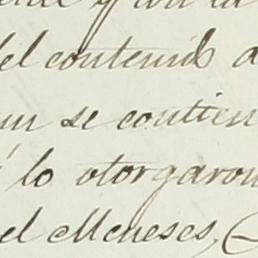 y con la
del contenido
se contien
lo otorgaron
el Meneses,